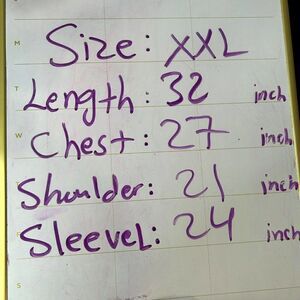 Size: XXL
Length: 32 inch
Chest: 27 inch
Shoulder: 21 inch
SleeveL: 24 inch